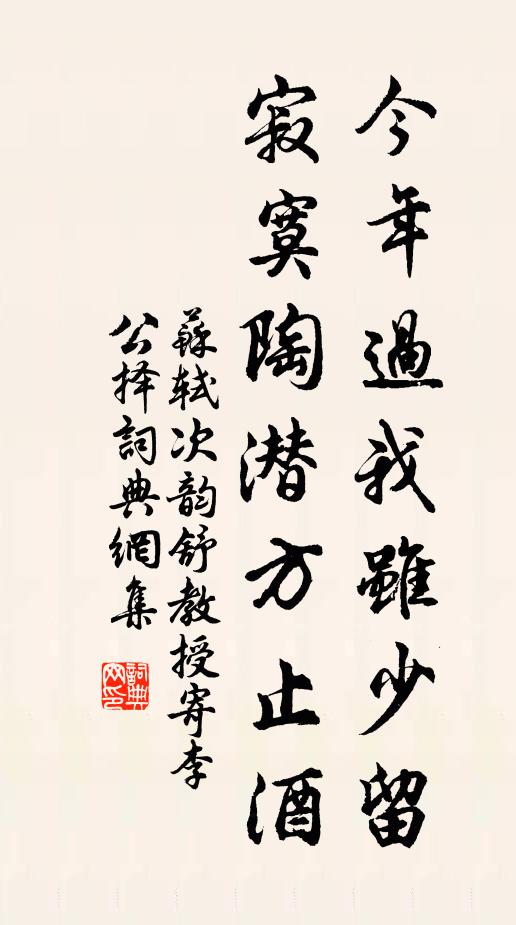 今年過我雖少留
寂寞陶潜方止酒
蘇軾次韵舒教授寄李
公择詞典網集
詞典网印